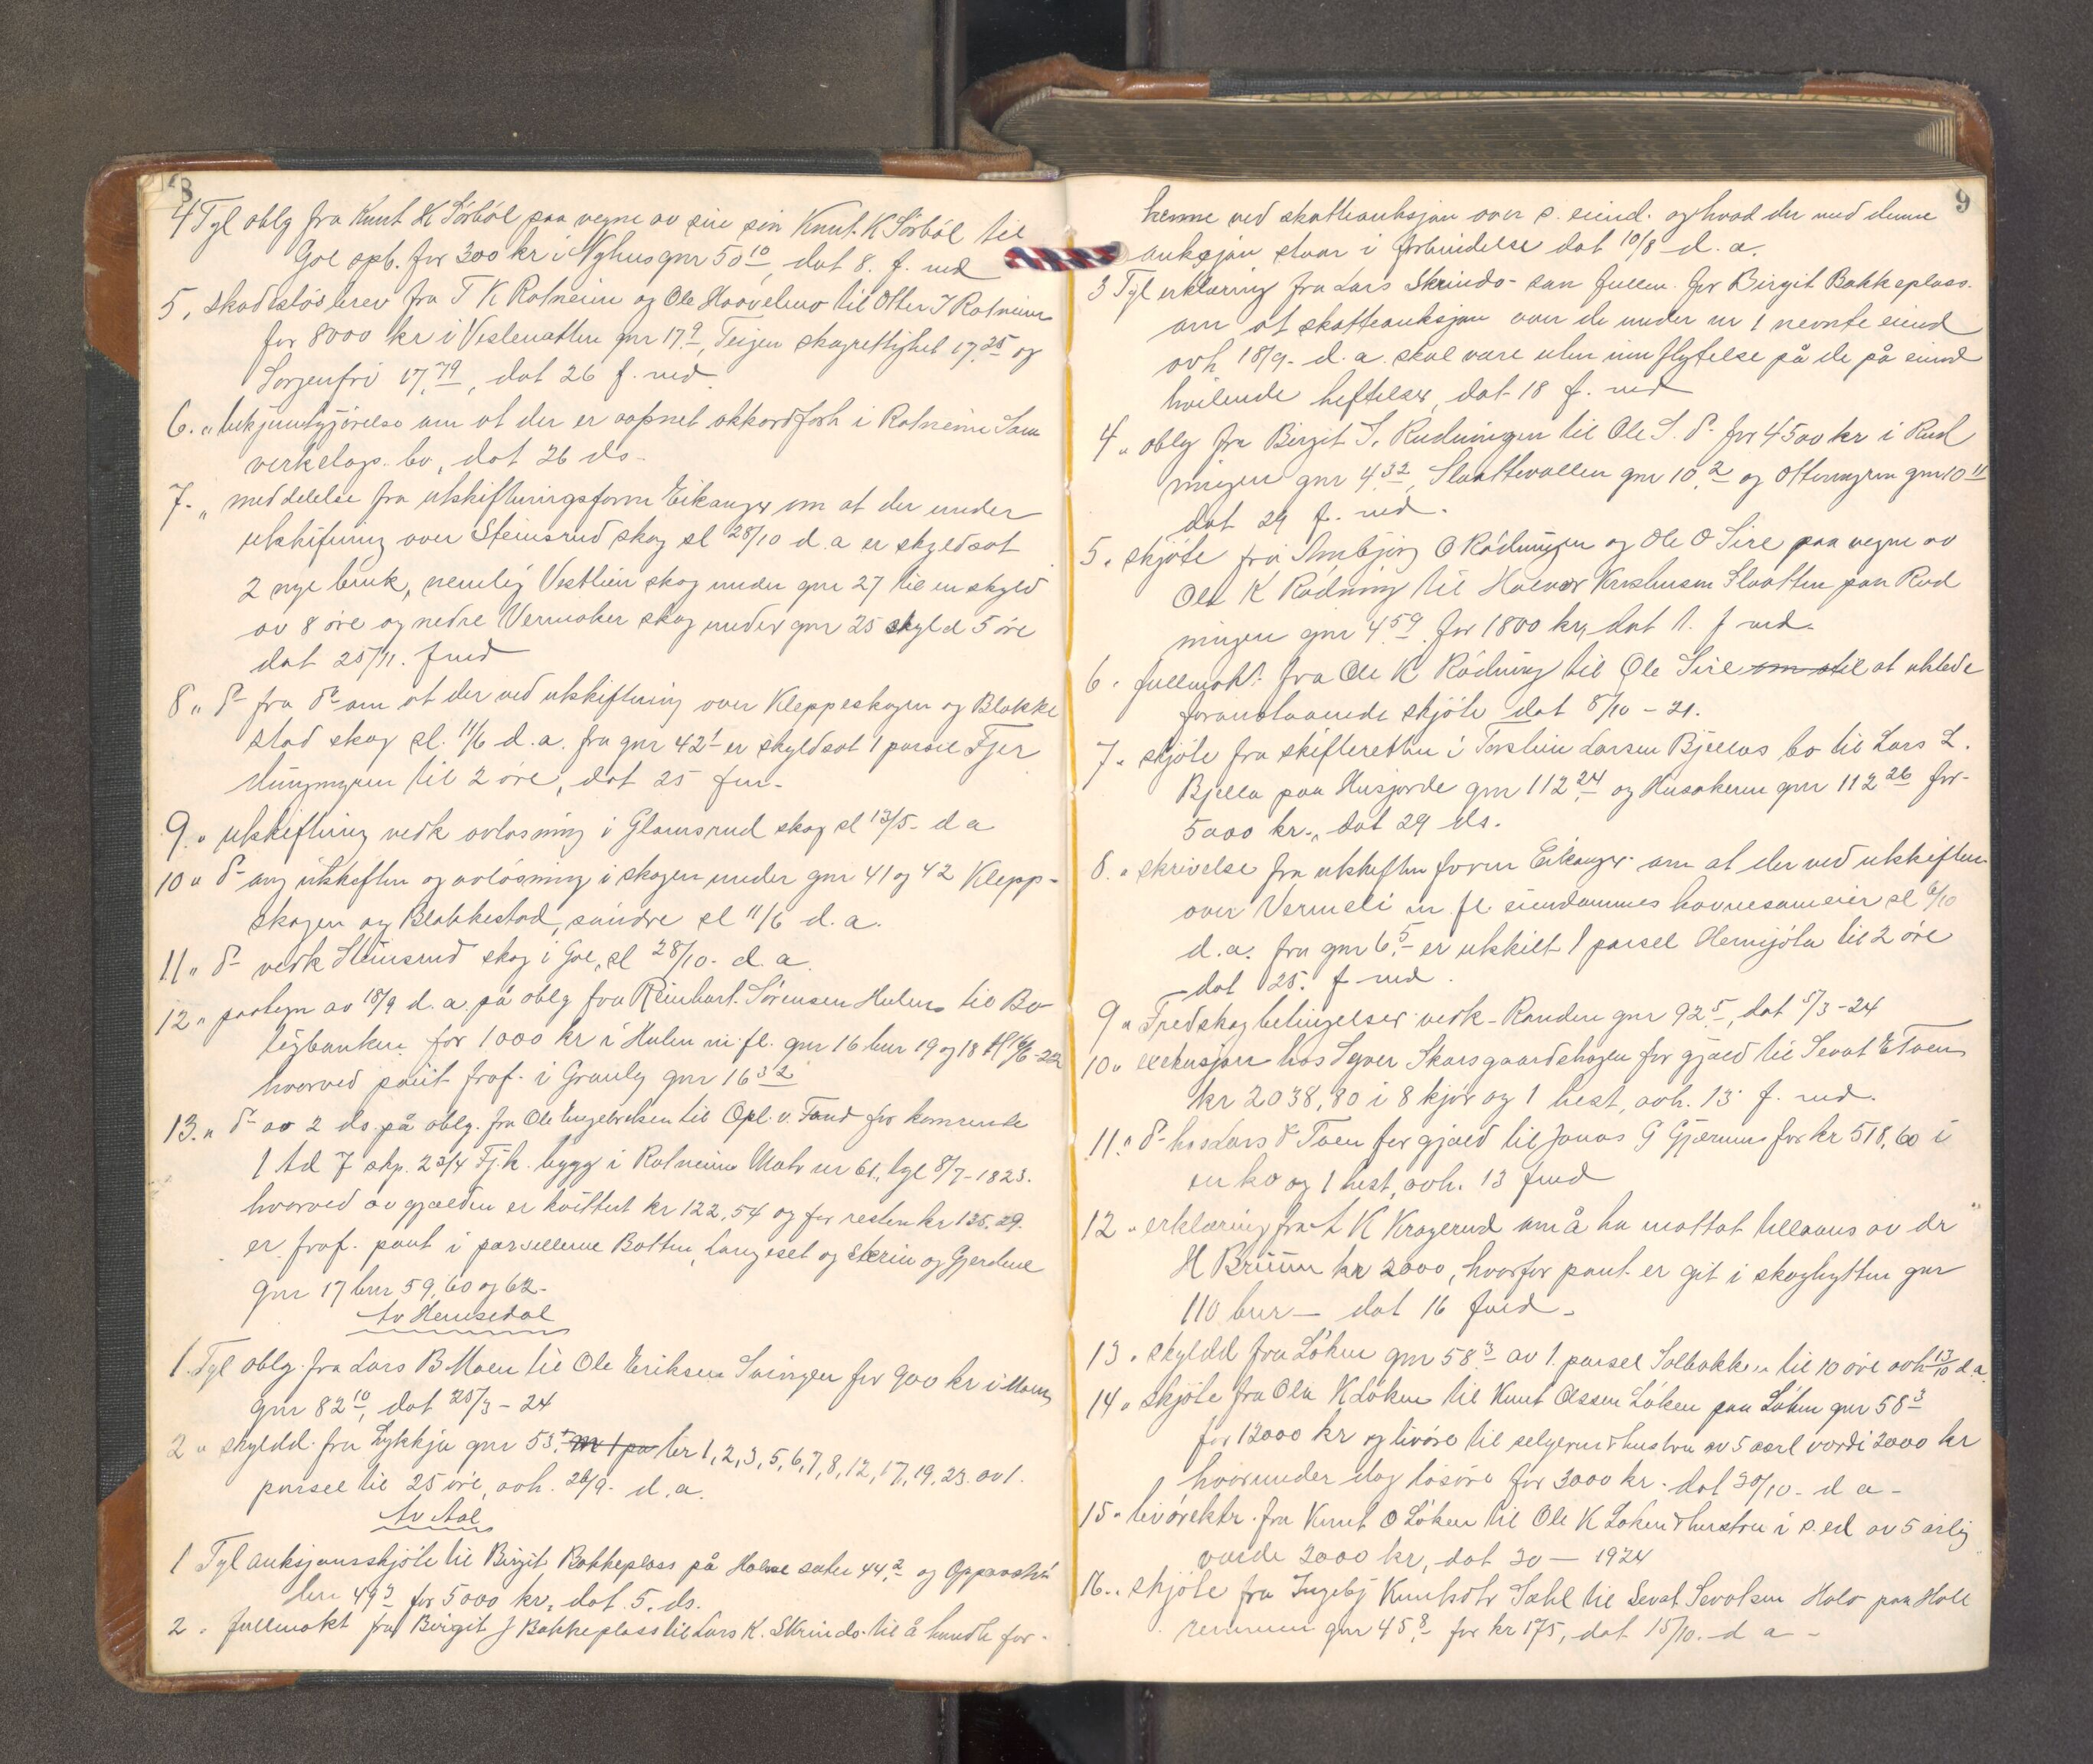 8
4 Tgl oblg fra Knut K Sørbøl paa vegne av sin søn Knut K Sørbøl til
Gol spb. for 300 kr i Nyhus gnr 50 10, dat 8. f. md
5 " skadesløsbrev fra T K Rotneim og Ole Haavelmo til Otter T Rotneim
for 8000 kr i Veslenatten gnr 17 9, Teigen skogrettighet 17,25 og
Sorgenfri 17,79, dat 26 f. md.
6. " bekjentgjørelse om at der er aapnet akkordforh i Rotneim Sam
virkelags bo, dat 26 ds.
7. " meddelelse fra utskiftningsform Eikanger om at der under
utskiftning over Steinsrud skog sl 28/10 d.a er skyldsat
2 nye bruk, nemlig Vestlien skog under gnr 27 til en skyld
av 8 øre og nedre Vermaker skog under gnr 25 skyld 5 øre
dat 25/11. f md
8 " do fra do om at der ved utskiftning over Kleppeskogen og Blakke
stad skog sl. 11/6 d.a. fra gnr 42 1 er skyldsat 1 parsel Fjer
til 2 øre, dat 25 fm.
9. " utskiftning vedk avløsning i Glamsrud skog sl 13/5- d a
10 " do ang utskiften og avløsning i skogen under gnr 41 og 42 Klepp-
skogen og Blakkestad, søndre sl 11/6 d.a.
11 " do vedk Steinsrud skog i Gol, sl 28/10- d.a.
12 " paategn av 18/9 d.a. på oblg fra Reinhart Sørensen Hulen til Bo
ligbanken for 1000 kr i Hulen m.fl. gnr 16 bnr 19 og 18
hvorved pant fraf. i Granly gnr 16 32
13. " do av 2 ds. på oblg. fra Ole Engebretsen til Opl. v. Fond for
1 td 7 skp. 2 3/4 Fj.k. bygg i Rotneim Matr nr 61, tgl 8/7-1823.
hvorved av gjælden er kvittert kr 122,54 og for resten kr 135.29.
er fraf. pant i parsellene Botten, Langeset og Skrin og Gjerdene
gnr 17 bnr 59, 60 og 62.
Av Hemsedal
1. Tgl oblg. fra Lars B Moen til Ole Eriksen Svingen for 900 kr i Moen
gnr 82 10, dat 25/3 - 24
2 " skyldd. fra Lykkja gnr 53, bnr 1, 2, 3, 5, 6, 7, 8, 12, 17, 19, 23. av 1.
parsel til 25 øre, avh. 26/9- d.a.
Av Aal
1 Tgl auksjonsskjøte til Birgit Bakkeplass på Holme sæter 44,2 og
49 3 for 5000 kr, dat. 5. ds.
2 . fullmakt fra Birgit J Bakkeplass til Lars K. Skrindo til å handle for
9
henne ved skatteauksjon over s. eiend. og hvad der med denne
auksjon staar i forbindelse dat 10/8 d.a.
3 Tgl erklæring fra Lars Skrindo som fullm. for Birgit Bakkeplass.
om at skatteauksjon over de under nr 1 nevnte eiend
avh 18/9- d.a. skal være uten innflytelse på de på eiend
hvilende heftelser, dat 18 f. md
4 " oblg fra Birgit S. Rudningen til Ole S. do for 4500 kr i Rud
ningen gnr 4 32, Slaattevollen gnr 10,2 og gnr 10 11
dat 29 f. md.
5. skjøte fra O Rødningen og Ole O Sire paa vegne av
Ole K Rødning til Halvor Slaatten paa Rud
ningen gnr 4,59 for 1800 kr, dat 1. f md.
6 . fullmakt fra Ole K Rødning til Ole Sire om til at utstede
foranstaaende skjøte dat 8/10 - 21.
7 " skjøte fra skifteretten i Torstein Larsen Bjellas bo til Lars L.
Bjella paa Husjorde gnr 112 24 og Husakeren gnr 112 26 for
5000 kr., dat 29 ds.
8. " skrivelse fra utskiftn formn Eikanger om at der ved utskiften
over Vermeli m fl eiendommes havnesameier sl 6/10
d.a. fra gnr 6,5 er utskilt 1 parsel til 2 øre
dat 25. f md.
9 " Fredskogbetingelser vedk. Randen gnr 92 5, dat 5/3-24
10 " exekusjon hos Syver Skarsgaardshagen for gjæld til Sevat E Toen
kr 2038,80 i 8 kjør og 1 hest, avh. 13 f. md.
11 " do hos Lars Toen for gjæld til Jonas G for kr 518,60 i
en ko og 1 hest, avh. 13 f md
12 " erklæring fra L K Kragerud om å ha mottat tillaans av dr
H kr 2000, hvorfor pant er git i skoghytten gnr
110 bnr — dat 16 f md.
13 . skyldd fra Løken gnr 58 3 av 1. parsel Solbakken til 10 øre avh 13/10 d.a.
14 " skjøte fra Ola K Løken til Knut Olssen Løken paa Løken gnr 58 3
for 12000 kr og livøre til selgeren & hustru av 5 aarl verdi 2000 kr
hvorunder dog løsøre for 3000 kr. dat 30/10- d a -
15 " livørektr. fra Knut O Løken til Ole K Løken & hustru i s.ed av 5 årlig
værde 2000 kr, dat 30 — 1924
16. . skjøte fra Ingebj Knutsdtr Sæhl til Sevat Sevatsen Hole paa Hole
gnr 45 8 for kr 175, dat 15/10. d a -